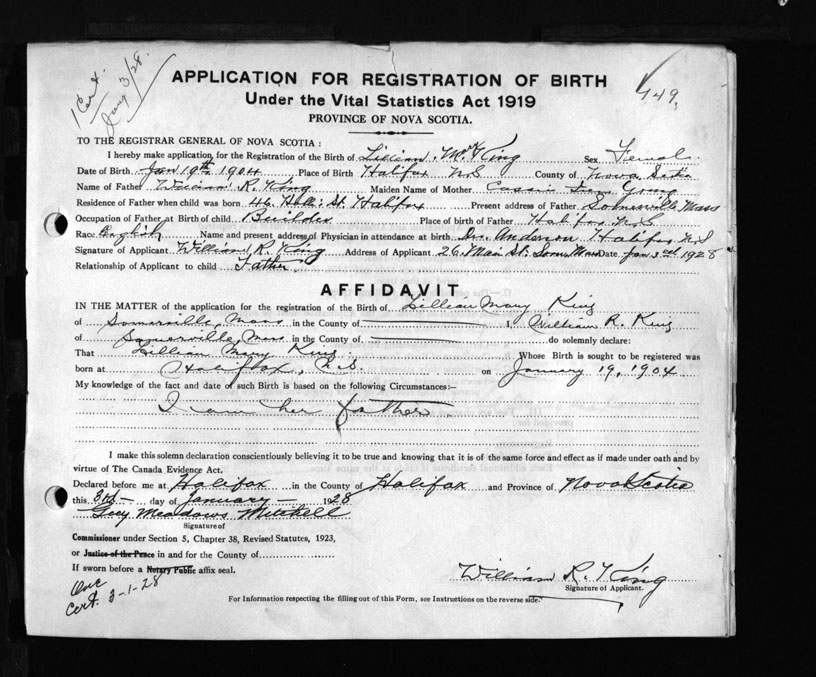 1 Cert.
Jany 3/28.
749.
APPLICATION FOR REGISTRATION OF BIRTH
Under the Vital Statistics Act 1919
PROVINCE OF NOVA SCOTIA.
TO THE REGISTRAR GENERAL OF NOVA SCOTIA:
I hereby make application for the Registration of the Birth of Lillian My King Sex Female
Date of Birth Jan 19th 1904 Place of Birth Halifax N.S County of Nova Scotia
Name of Father William R. King Maiden Name of Mother Cassie Young
Residence of Father when child was born 46 Hollis St. Halifax Present address of Father Somerville Mass
Occupation of Father at Birth of child Builder Place of birth of Father Halifax N.S
Race English Name and present address of Physician in attendance at birth Dr. Anderson, Halifax N.S
Signature of Applicant William R. King Address of Applicant 26 Main St. Som. Mass Date Jan 3rd 1928
Relationship of Applicant to child Father
AFFIDAVIT
IN THE MATTER of the application for the registration of the Birth of Lillian Mary King
of Somerville, Mass in the County of I William R. King
of Somerville, Mass in the County of do solemnly declare:
That Lillian Mary King Whose Birth is sought to be registered was
born at Halifax, N.S. on January 19, 1904
My knowledge of the fact and date of such Birth is based on the following Circumstances:—
I am her father
I make this solemn declaration conscientiously believing it to be true and knowing that it is of the same force and effect as if made under oath and by
virtue of The Canada Evidence Act.
Declared before me at Halifax in the County of Halifax and Province of Nova Scotia
this 3rd day of January 1928
Guy Meadows Mitchell
Signature of
Commissioner under Section 5, Chapter 38, Revised Statutes, 1923,
or Justice of the Peace in and for the County of
If sworn before a Notary Public affix seal.
One
Cert. 3-1-28
William R. King
Signature of Applicant.
For Information respecting the filling out of this Form, see Instructions on the reverse side.